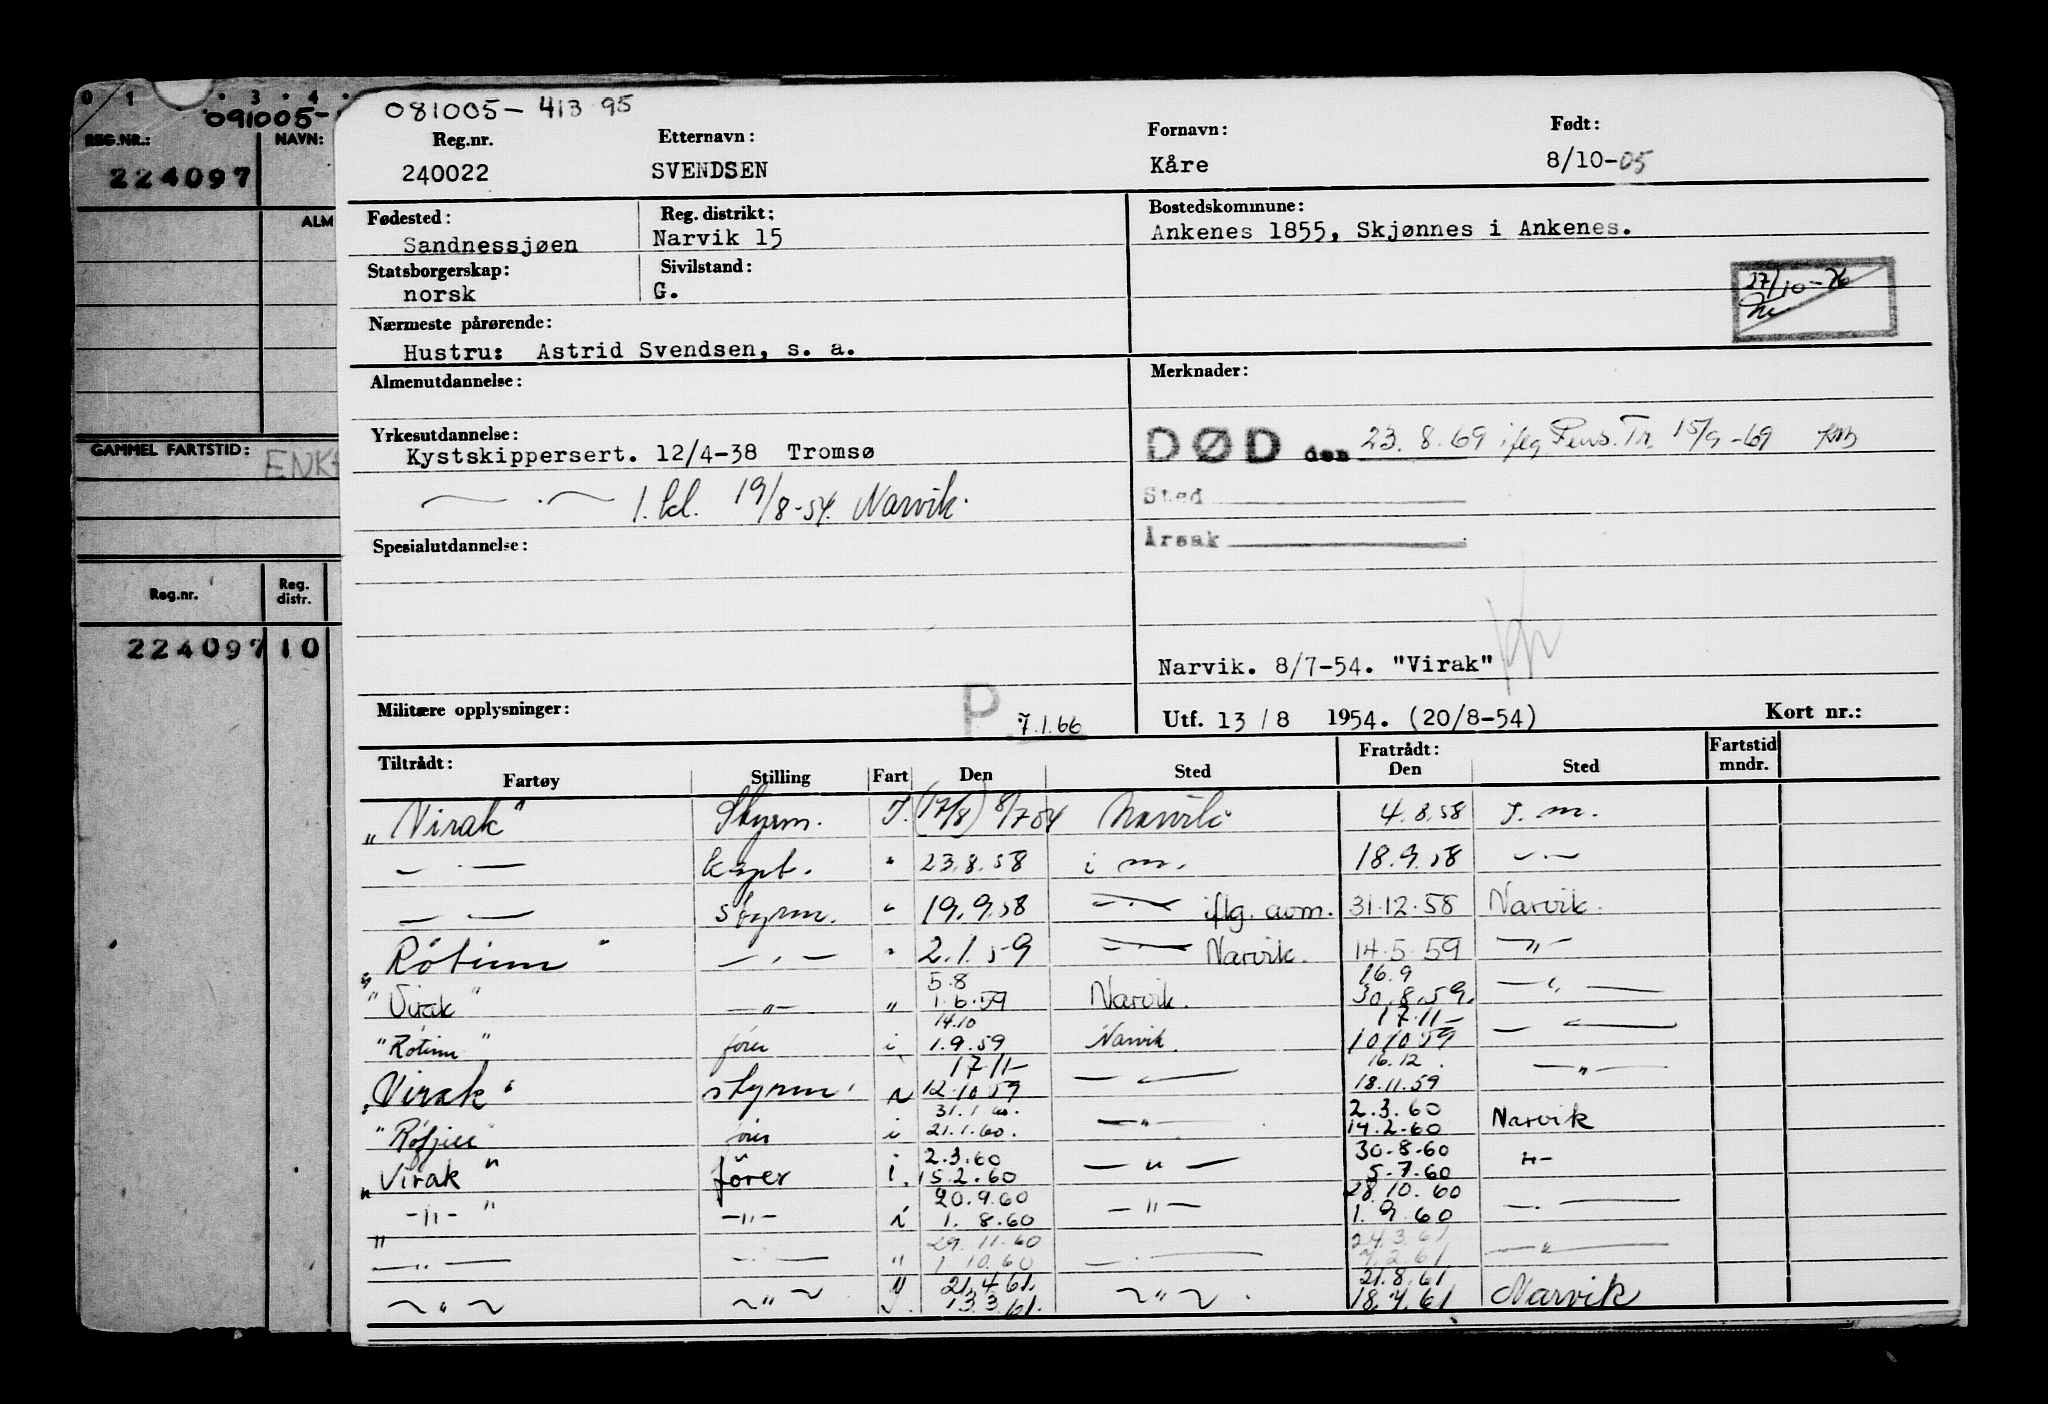 0 1 · 3 · 4 ·
091005-
REG.NR.: NAVN:
224097
ALM
GAMMEL FARTSTID:
ENK
Reg.nr. Reg. distr.
224097 10
081005- 413 95
Reg.nr. Etternavn: Fornavn: Født:
240022 SVENDSEN Kåre 8/10-05
Fødested: Reg. distrikt: Bostedskommune:
Sandnessjøen Narvik 15 Ankenes 1855, Skjønnes i Ankenes.
Statsborgerskap: Sivilstand:
norsk G.
27/10-76
Nærmeste pårørende:
Hustru: Astrid Svendsen, s. a.
Almenutdannelse: Merknader:
Yrkesutdannelse:
Kystskippersert. 12/4-38 Tromsø
DØD den 23.8.69 iflg Pens. Tr. 15/9-69
— · — 1. kl. 19/8-54. Narvik.
Sted
Årsak
Spesialutdannelse:
Narvik. 8/7-54. "Virak"
Militære opplysninger: P 7.1.66
Utf. 13/8 1954. (20/8-54) Kort nr.:
Tiltrådt: Fratrådt: Fartstid mndr.
Fartøy Stilling Fart Den Sted Den Sted
"Virak" Styrm. I. (17/8) 8/7 54 Narvik 4.8.58 I. m.
— · — kapt. " 23.8.58 i m. 18.9.58 — · —
— — styrm. " 19.9.58 — · — iflg. avm. 31.12.58 Narvik.
"Rötinn" — · — " 2.1.59 — · — Narvik. 14.5.59 — " —
5.8 16.9
"Virak" — " — " 1.6.59 Narvik. 30.8.59. — " —
14.10 17.11-
"Rötinn" fører i 1.9.59 Narvik. 10.10.59 — " —
17.11- 16.12.
"Virak" styrm. 12.10.59 — " — 18.11.59 — " —
31.1.60. 2.3.60
i 21.1.60. — " — 14.2.60 Narvik
2.3.60 30.8.60
"Virak" förer i. 15.2.60 — " — 5.7.60 — " —
20.9.60 28.10.60
— " — " — " — i 1.8.60 — " — 1.9.60 — · —
29.11.60 24.3.61
— " — — · — " 1.10.60 — · — 7.2.61 — " —
21.4.61. 21.8.61
~ " ~ ~ " ~ 13.3.61. ~ " ~ 18.4.61 Narvik